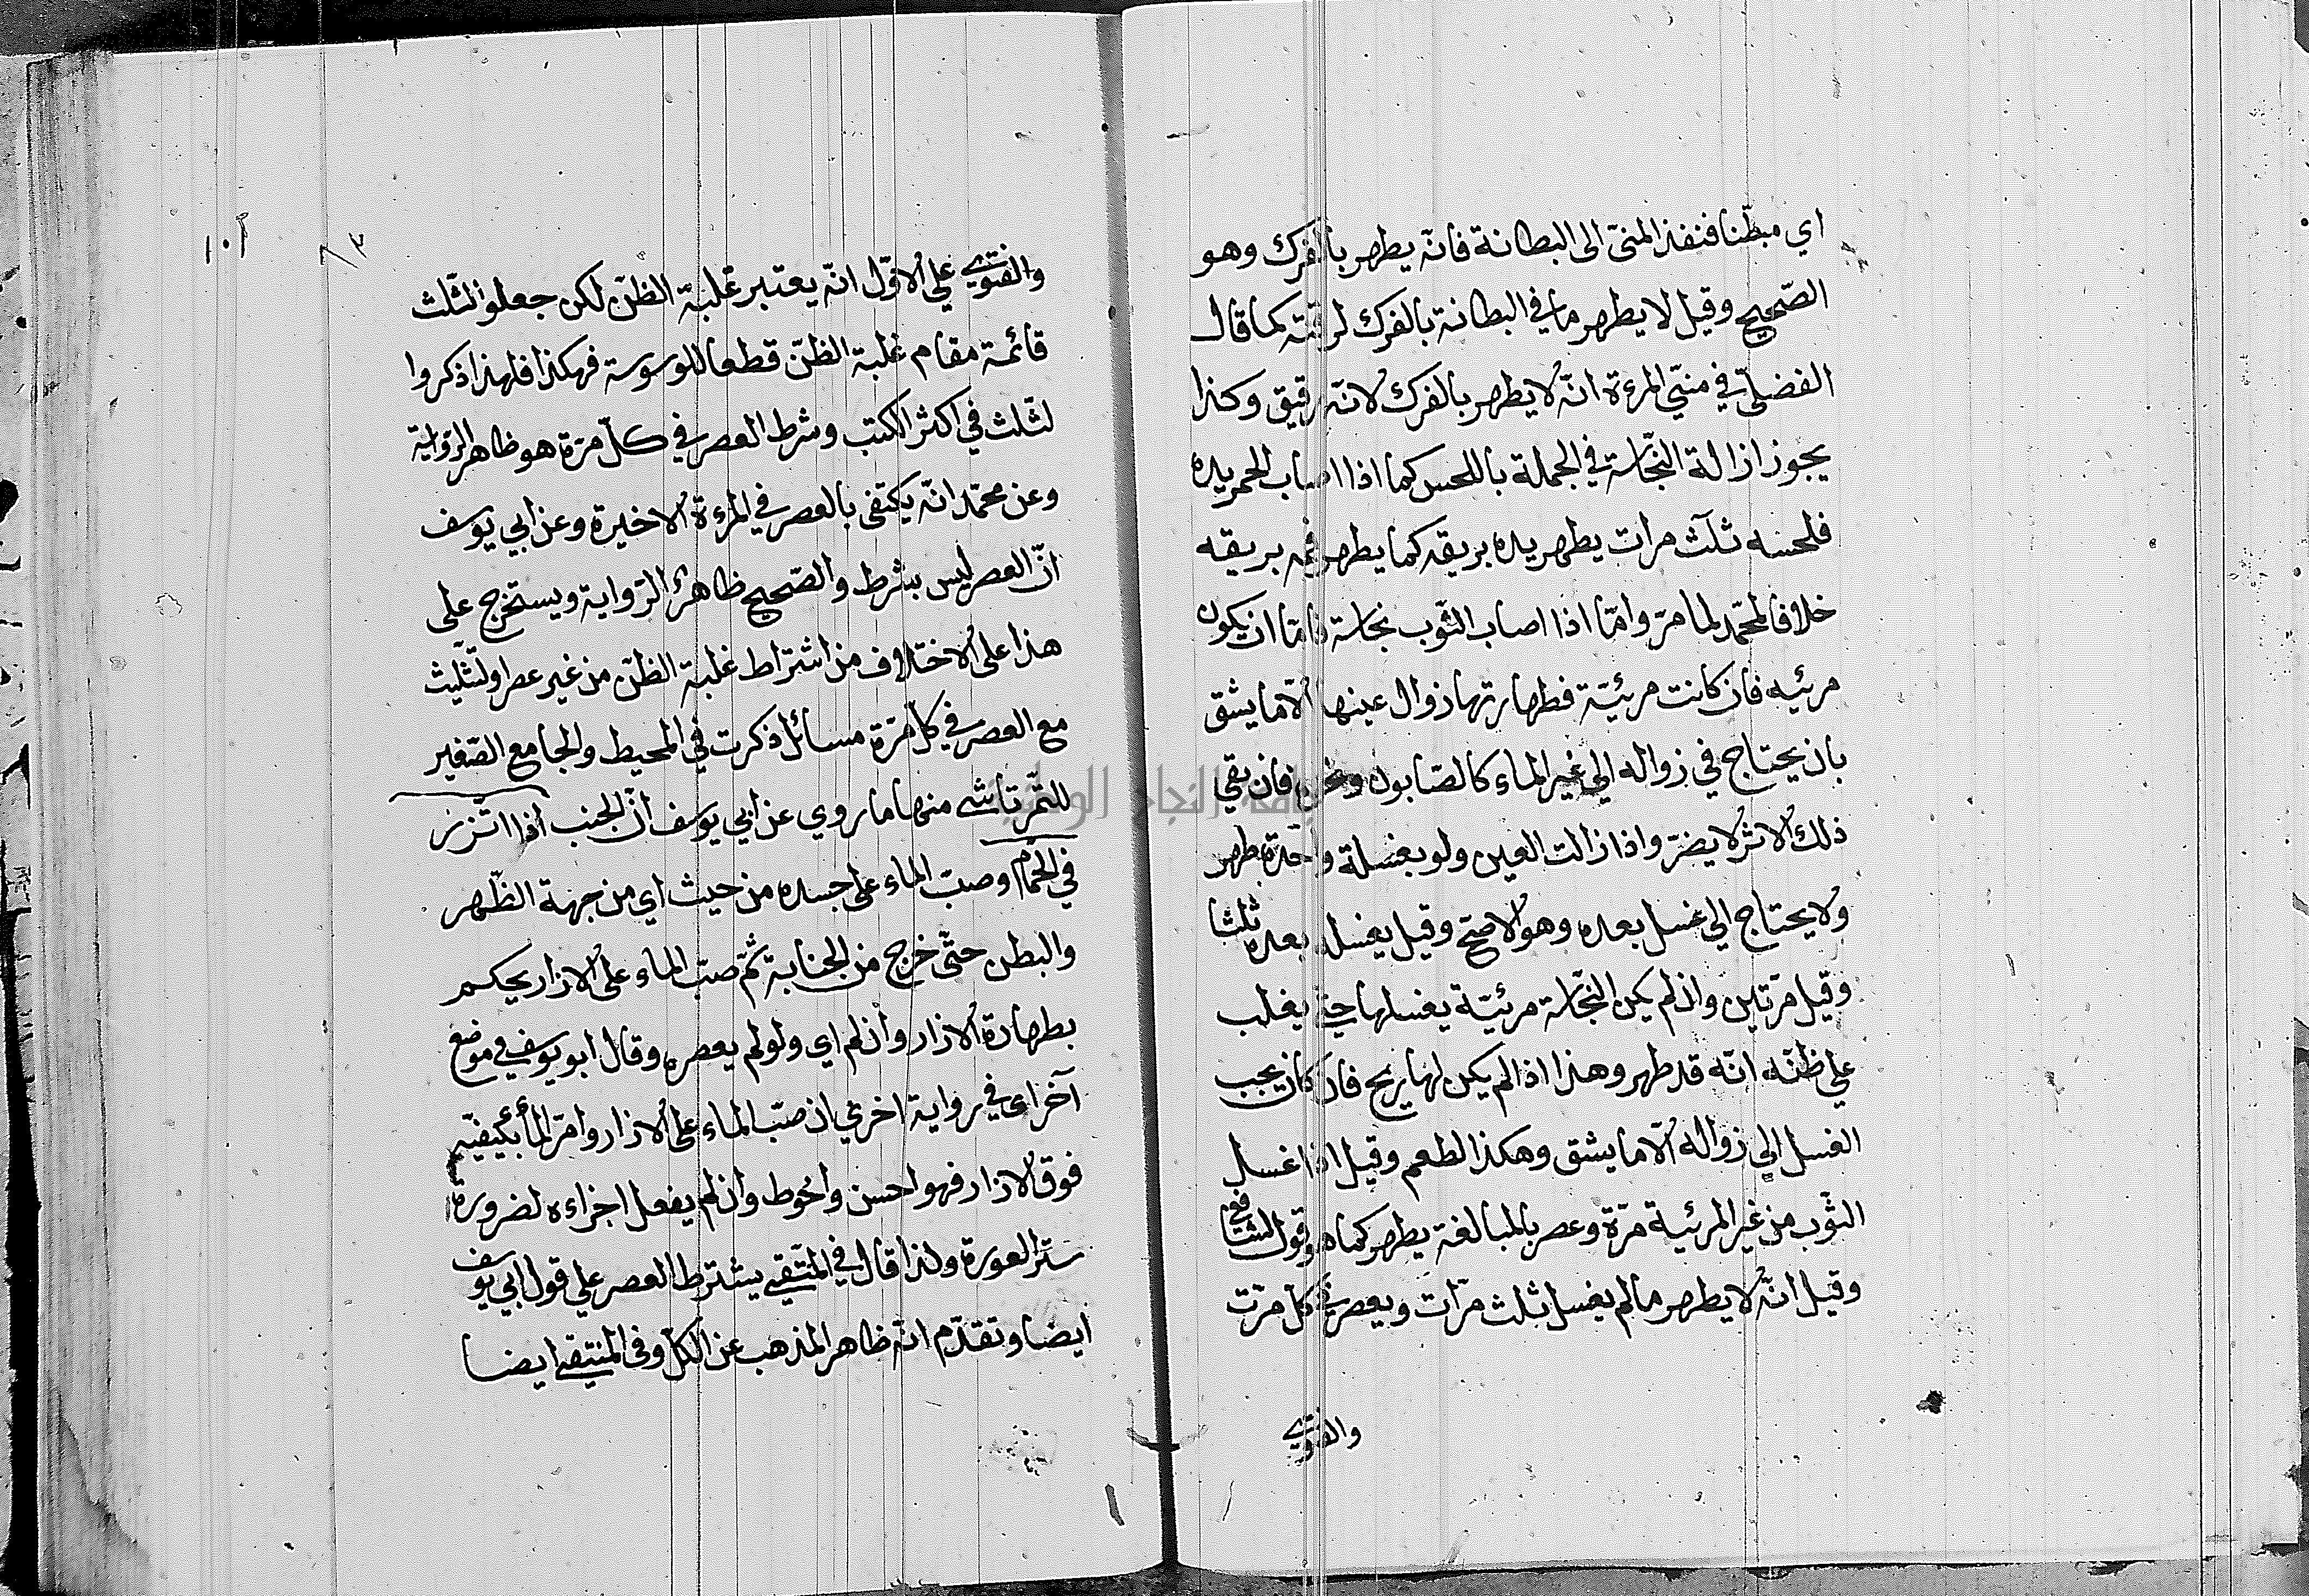 اي مبطّنا فنفذ المنيّ الى البطانة فانّه يطهر بالفرك وهو
الصّحيح وقيل لا يطهر ما في البطانة بالفرك لرقّته كما قال
الفضليّ في منيّ المرءة انّه لا يطهر بالفرك لانّه رقيق وكذا
يجوز ازالة النّجاسة في الجملة باللحس كما اذا اصاب الخمر يده
فلحسه ثلٰث مرات يطهر يده بريقه كما يطهر فمه بريقه
خلافا لمحمّد لما مرّ وامّا اذا اصاب الثّوب نجاسة فامّا ان يكون
مرئيه فان كانت مرئيّة فطهارتها زوال عينها الّا ما يشق
بان يحتاج في زواله الي غير الماء كالصّابون ونحوه فان بقي
ذلك الاثر لا يضرّ واذا زالت العين ولو بغسلة واحدة طهر
ولا يحتاج الي غسل بعده وهو الاصحّ وقيل يغسله بعده ثلثا
وقيل مرتين وان لم يكن النّجاسة مرئيّة يغسلها حتى يغلب
علي ظنّه انّه قد طهر وهذا اذا لم يكن لها ريح فان كان يجب
الغسل الي زواله الّا ما يشق وهكذا الطعم وقيل اذا غسل
الثّوب من غير المرئية مرّة وعصر بالمبالغة يطهر كما هو قول الشّافعي
وقيل انّه لا يطهر ما لم يغسل ثلث مرّات ويعصر في كل مرّت
والفتوي
١٠١
والفتوي علي الاوّل انّه يعتبر غلبة الظنّ لكن جعلوا لثّلث
قائمة مقام غلبة الظنّ قطعا للوسوسة فهكذا فلهذا ذكروا
لثّلث في اكثر الكتب وشرط العصر في كلّ مرّة هو ظاهر الرّواية
وعن محمّد انّه يكتفى بالعصر في المرءة الاخيرة وعن ابي يوسف
انّ العصر ليس بشرط والصّحيح ظاهر الرّواية ويستخرج على
هذا على الاختلاف من اشتراط غلبة الظنّ من غير عصر او لتّثليث
مع العصر في كلّ مرّة مسائل ذكرت في المحيط والجامع الصّغير
للتّمرتاشي منها ما روي عن ابي يوسف انّ الجنب اذا اتّزر
في الحمّام وصبّ الماء على جسده من حيث اي من جهة الظّهر
والبطن حتّى خرج من الجنابة ثمّ صبّ الماء على الازار يحكم
بطهارة الازار وان لم اي ولو لم يعصره وقال ابو يوسف في موضع
آخر اى في رواية اخري ان صبّ الماء على الازار وامرّ الماء بكفيه
فوق الازار فهو احسن واحوط وان لم يفعل اجزاءه لضرورة
ستر العورة ولذا قال في المنتقي يشترط العصر علي قول ابي يوسف
ايضا وتقدّم انّه ظاهر المذهب عن الكلّ وفي المنتقي ايضا